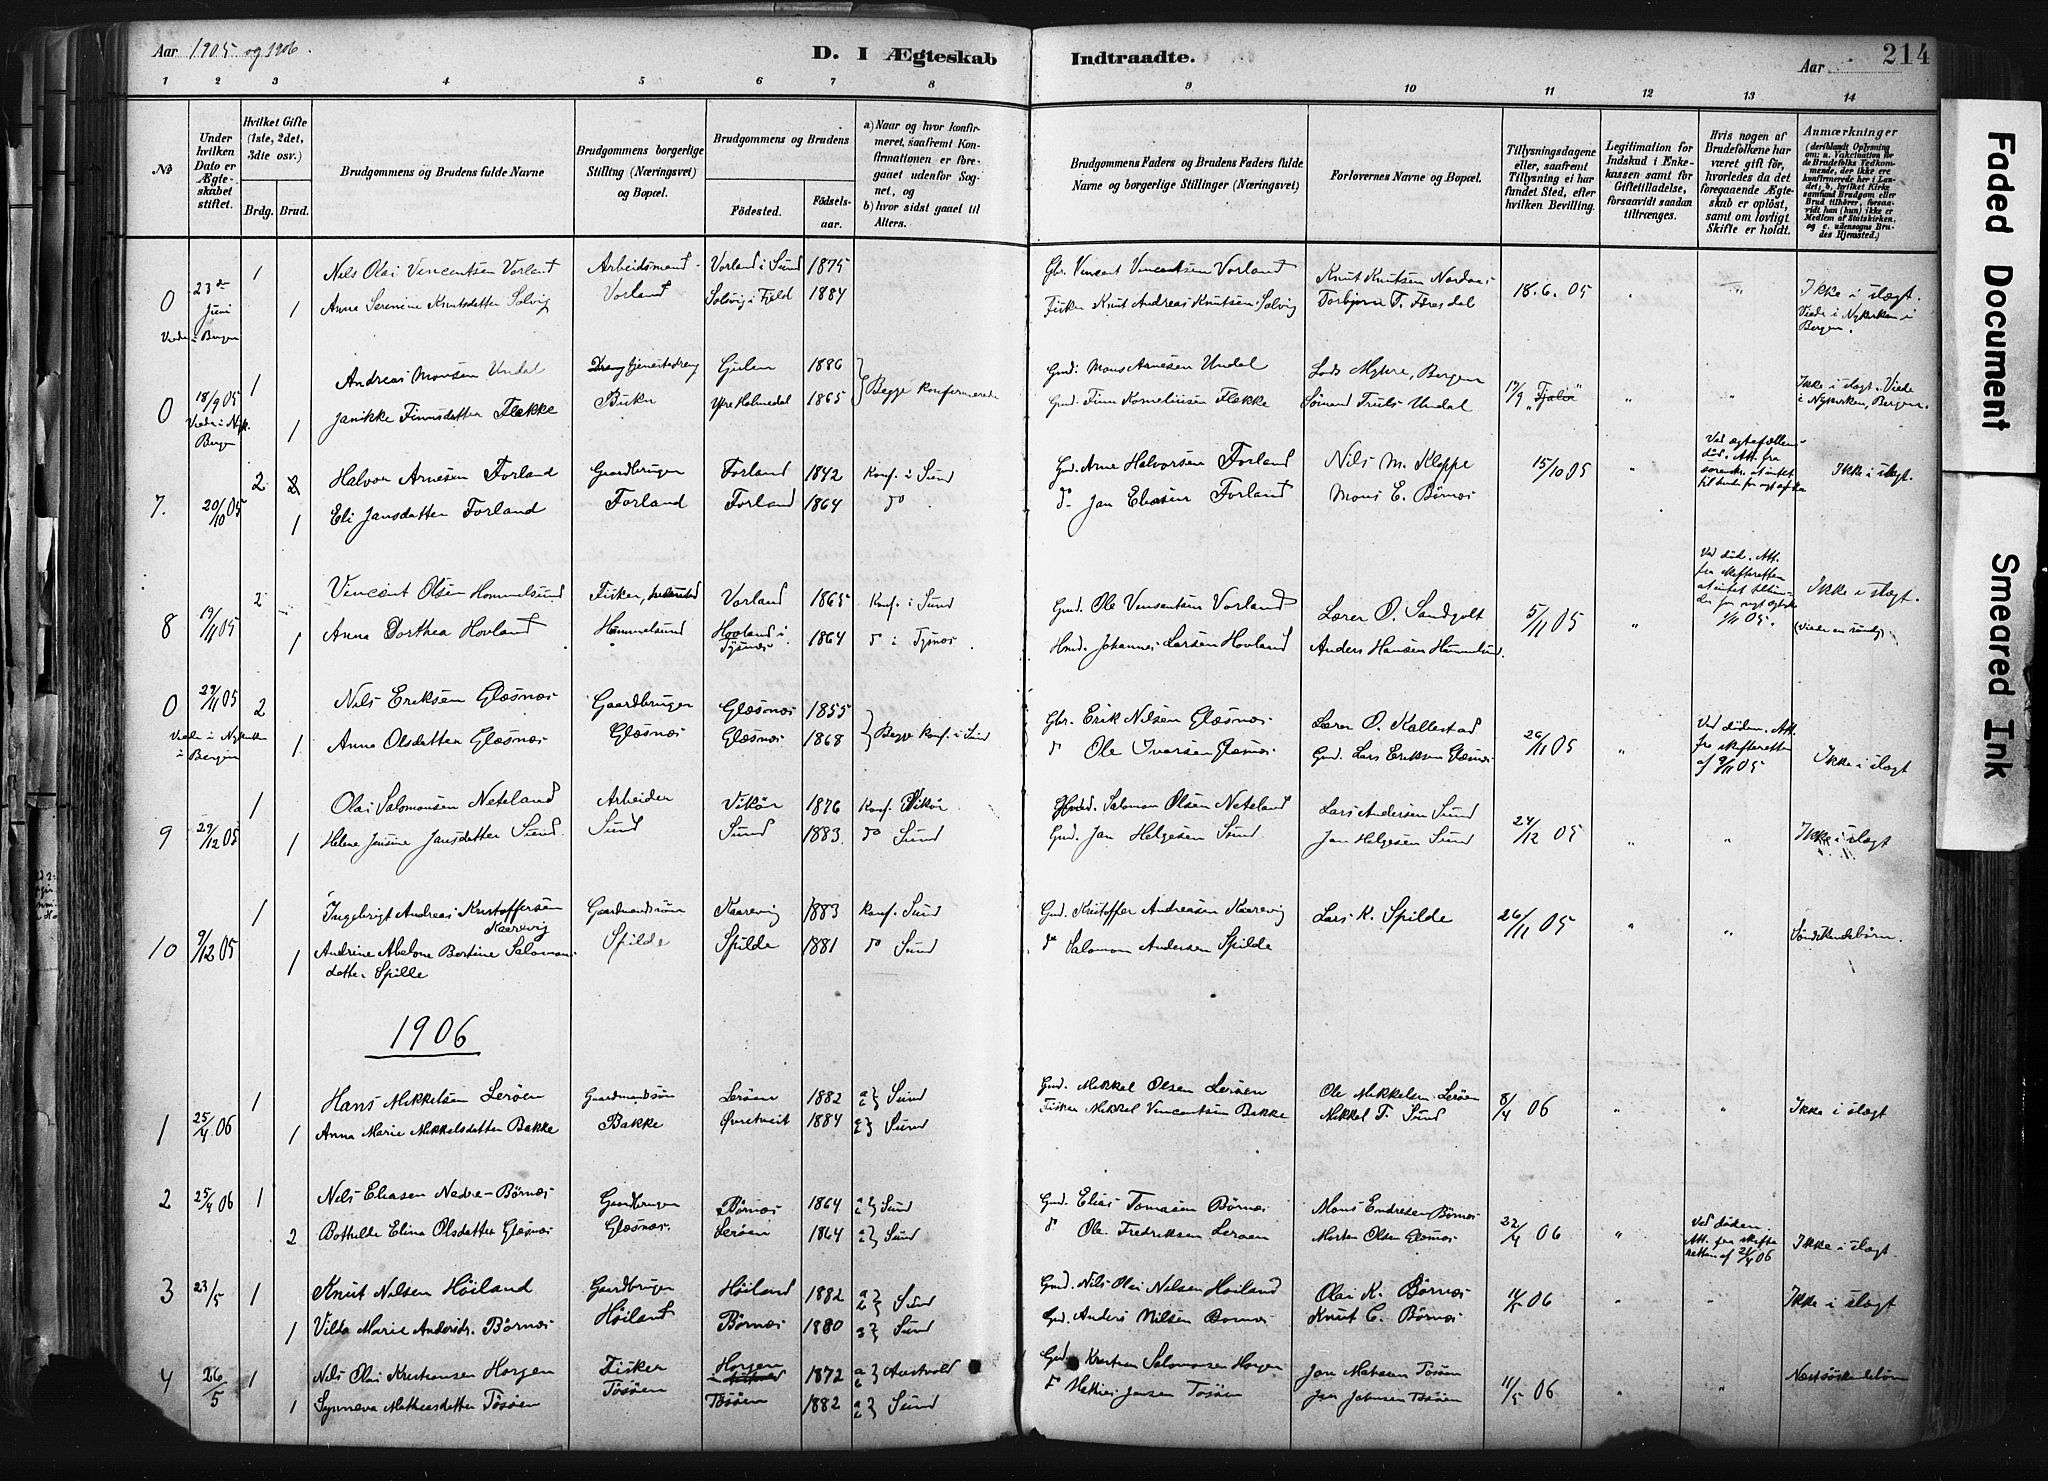 Aar 1905 og 1906.
D. I Ægteskab Indtraadte.
Aar
214
1 2 3 4 5 6 7 8 9 10 11 12 13 14
No
Under hvilken Dato er Ægteskabet stiftet.
Hvilket Gifte (1ste, 2det, 3die osv.)
Brdg. Brud.
Brudgommens og Brudens fulde Navne
Brudgommens borgerlige Stilling (Næringsvei) og Bopæl.
Brudgommens og Brudens
Fødested. Fødselsaar.
a) Naar og hvor konfirmeret, saafremt Konfirmationen er foregaaet udenfor Sognet, og
b) hvor sidst gaaet til Alters.
Brudgommens Faders og Brudens Faders fulde Navne og borgerlige Stillinger (Næringsvei)
Forlovernes Navne og Bopæl.
Tillysningsdagene eller, saafremt Tillysning ei har fundet Sted, efter hvilken Bevilling.
Legitimation for Indskud i Enkekassen samt for Giftetilladelse, forsaavidt saadan tiltrænges.
Hvis nogen af Brudefolkene har været gift før, hvorledes da det foregaaende Ægteskab er opløst, samt om lovligt Skifte er holdt.
Anmærkninger (deriblandt Oplysning om: a. Vakcination for de Brudefolks Vedkommende, der ikke ere konfirmerede her i Landet; b. hvilket Kirkesamfund Brudgom eller Brud tilhører, forsaavidt han (hun) ikke er Medlem af Statskirken, og c. udensogns Brudes Hjemsted.)
0 23de Juni 1 Nils Olai Vincentsen Vorland Arbeidsmand Vorland i Sund 1875 Gbr. Vincent Vincentsen Vorland Knut Knutsen Nordaas 18.6.05 " " Ikke i slægt.
1 Anna Serenine Knutsdatter Solvig Vorland Solvig i Fjeld 1884 Fisker Knut Andreas Knutsen Solvig Torbjørn T. Viede i Nykirken i Bergen.
Viede i Bergen
0 18/9 05 1 Andreas Monsen Undal Gulen 1886 Begge konfirmerede Gmd. Mons Arnesen Undal Lods Myhre, Bergen 17/9 " " Ikke i slægt. Viede i Nykirken, Bergen.
1 Janikke Finnsdatter Flekke Ytre Holmedal 1865 Gmd. Finn Korneliusen Flekke Sømand Truls Undal
Viede i Nyk. Bergen
7. 20/10 05 2 Halvor Arnesen Forland Gaardbruger Forland 1842 Konf. i Sund Gmd. Arne Halvorsen Forland Nils M. Kleppe 15/10 05 " Ikke i slægt.
1 Eli Jansdatter Forland Forland Forland 1864 do do Jan Eliasen Forland Mons E. Børnes
8 19/11 05 2 Vincent Olsen Hommelsund Fisker, Vorland 1865 Konf. i Sund Gmd. Ole Vinsentsen Vorland Lærer O. Sandgolt 5/11 05 " Ikke i slægt.
1 Anna Dorthea Hovland Hommelsund Hovland i Tysnes 1864 do i Tysnes Hmd. Johannes Larsen Hovland Anders Hansen Hummelsund
0 29/11 05 2 Nils Eriksen Glæsnes Gaardbruger Glæsnes 1855 Begge konf. i Sund Gbr. Erik Nilsen Glæsnes Lærer O. Kallestad 26/11 05 " Ved døden. Att. fra skifteretten af 9/11 05 Ikke i slægt
1 Anna Olsdatter Glæsnes Glæsnes Glæsnes 1868 do Ole Iversen Glæsnes Gmd. Lars Eriksen Glæsnes
Viede i Nykirken i Bergen
9 29/12 05 1 Olai Salomonsen Neteland Arbeider Vikør 1876 Konf. Vikør Hmd. Salomon Olsen Neteland Lars Andersen Sund 24/12 05 " " Ikke i slægt
1 Helene Jensine Jansdatter Sund Sund Sund 1883. do Sund Gmd. Jan Helgesen Sund Jan Helgesen Sund
10 9/12 05 1 Ingebrigt Andreas Kristoffersen Kaarevig Gaardmandssøn Kaarevig 1883 Konf. Sund Gmd. Kristoffer Andreasen Kaarevig Lars K. Spilde 26/11 05 " " Søndskendebørn.
1 Andrine Abelone Bertine Salomonsdatter Spilde Spilde Spilde 1881 do Sund do Salomon Andersen Spilde
1906
1 25/4 06 1 Hans Mikkelsen Lerøen Gaardmandssøn Lerøen 1882 Sund Gmd. Mikkel Olsen Lerøen Ole Mikkelsen Lerøen 8/4 06 " " Ikke i slægt
1 Anna Marie Mikkelsdatter Bakke Bakke Øvretveit 1884 Sund Fisker Mikkel Vincentsen Bakke Mikkel T. Sund
2 25/4 06 1 Nils Eliasen Nedre-Børnes Gaardbruger Børnes 1864 Sund Gmd. Elias Tomasen Børnes Mons Endresen Børnes 22/4 06 " Ved døden. Att. fra skifteretten af 21/4 06 Ikke i slægt.
2 Bothilde Elina Olsdatter Glæsnes Glæsnes. Lerøen 1864 Sund do Ole Fredriksen Lerøen Morten Olsen Glæsnes
3 23/5 1 Knut Nilsen Høiland Gaardbruger Høiland 1882 Sund Gmd. Nils Olai Nilsen Høiland Olai K. Børnes 06 " " Ikke i slægt
1 Vilda Marie Andersdr. Børnes Høiland Børnes 1880 Sund Gmd. Anders Nilsen Børnes Knut C. Børnes
4 26/5 1 Nils Olai Kristiansen Horgen Fisker Horgen i Austvold 1872 Austvold Gmd. Kristian Salomonsen Horgen Jan Matiasen Tøsøen 11/5 06 " " Næstsøskendebørn
1 Synneva Mathiasdatter Tøsøen Tøsøen Tøsøen 1882 Sund do Mathias Jansen Tøsøen Tøsøen
Faded Document
Smeared Ink